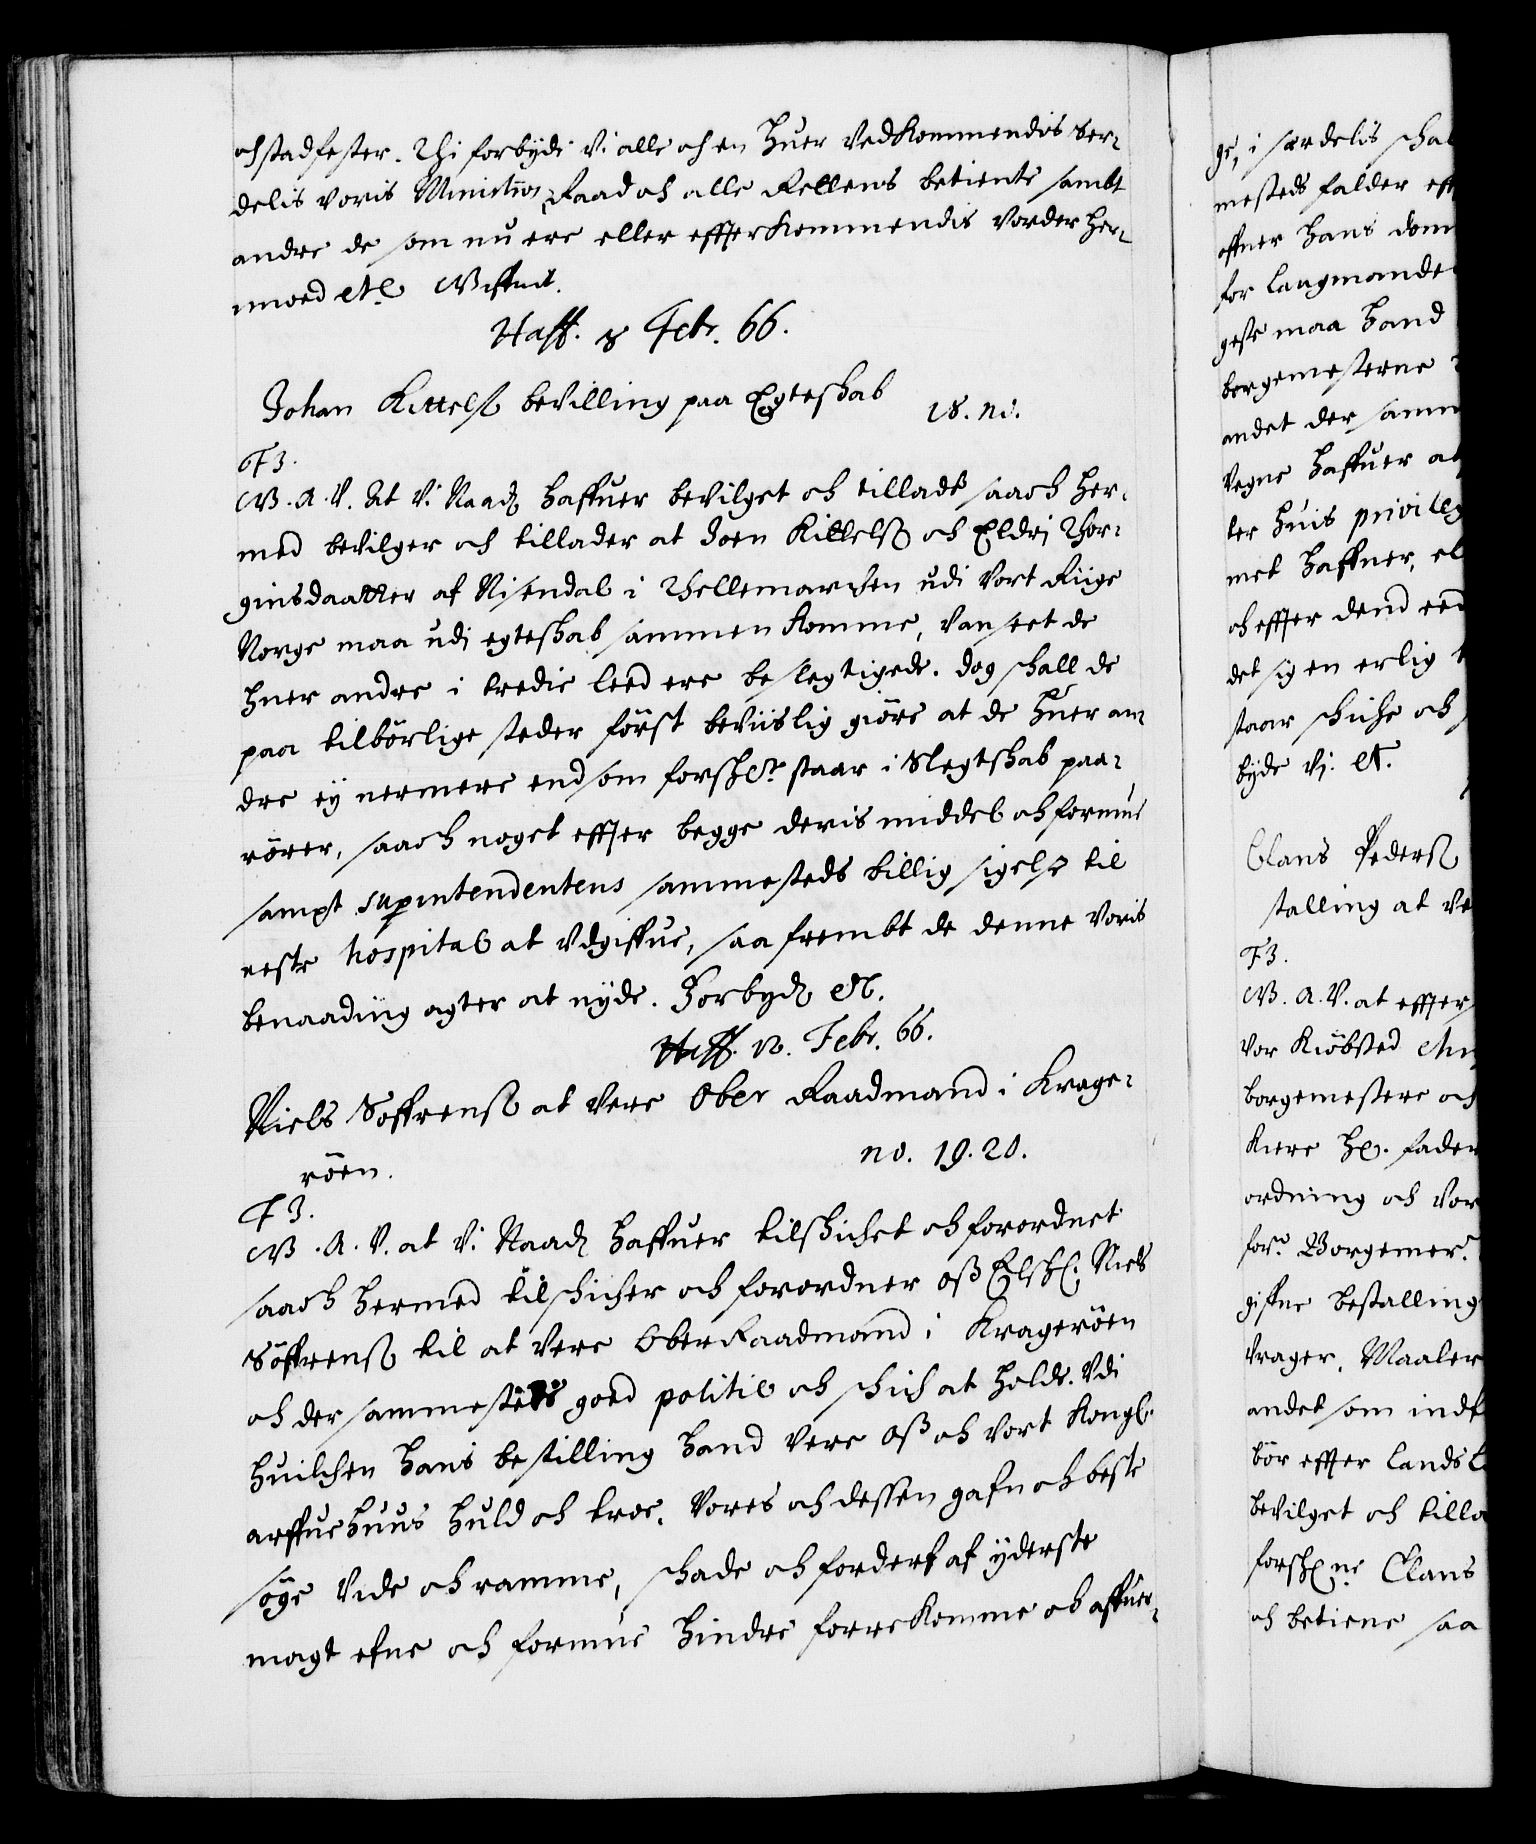 och stadfester. Thi forbyde Vi alle och en huer Vedkommendis Ser-
delis Voris Ministros, Raad och alle Rettens betiente sambt
andre de som nu ere eller effterkommendis Vorder her-
imod etc
Haff. 8 Febr. 66.
Johan Kittelß bevilling paa Egteskab 18. no.
F 3.
G. A. V. At Vi Naad haffuer bevilget och tilladt saa och her-
med bevilger och tillader at Joen Kittelß och Eldri Thor-
ginsdaatter af Nisendal i Thellemarchen udi Vort Riige
Norge maa udj egteskab sammen komme, Vanseet de
huer andre i tredie leed ere beslegtigede. dog skall de
paa tilbörlige steder först beviislig giöre at de huer an-
dre ey nermere end som forschr. staar i Slegtskab paa-
rörer, saa och noget effter begge deris middel och formue
sampt superintendentens sammesteds billig sigelse til
neste hospital at Vdgiffue, saa frembt de denne Voris
benaading agter at nyde. Forbyd etc.
Haff. 10. Febr. 66.
Niels Söffrenß at Vere Ober Raadmand i Krage-
röen. no. 19. 20.
F 3.
G. A. V. at Vi Naad haffuer tilskicket och forordnet
saa och hermed tilskicker och forordner oß Elskl. Niels
Söffrenß til at Vere Ober Raadmand i Krageröen
och der sammesteds goed politie och skick at holde. Vdi
huilchen hans bestilling hand Vere oß och Vort Kongl.
arffue huus huld och troe, Vores och dessen gafn och beste
söge Vide och ramme, skade och forderf af yderste
magt efne och formue hindre forrekomme och affuer-
ge, i særdelis skal
mesteds falder eff
offuer hans dom
for Laugmande
geste maa hand
borgemesterne
andet der samm
Vegne haffuer at
ter huis privileg
met haffuer, el
och effter dend eed
det sig en erlig
staar skicke och
byde Vj. etc.
Claus Pederß
stalling at Ve
F 3.
G. A. V. at effter
Vor Kiöbsted Chri
borgemestere och
kiere Hr. fader
ordning och Vor
for. Borgemer.
giffne bestalling
Vrager, Maaler
andet som indf
bör effter Lands L
bevilget och tilla
forschne. Claus
och betiene saa